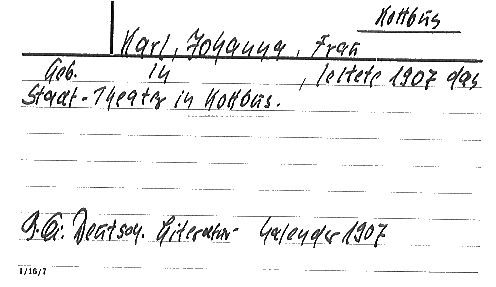 Kottbus
Karl, Johanna, Frau
Geb. in , leitete 1907 das
Stadt-Theater in Kottbus.
Deutsch. Literatur- Kalender 1907
1/16/7